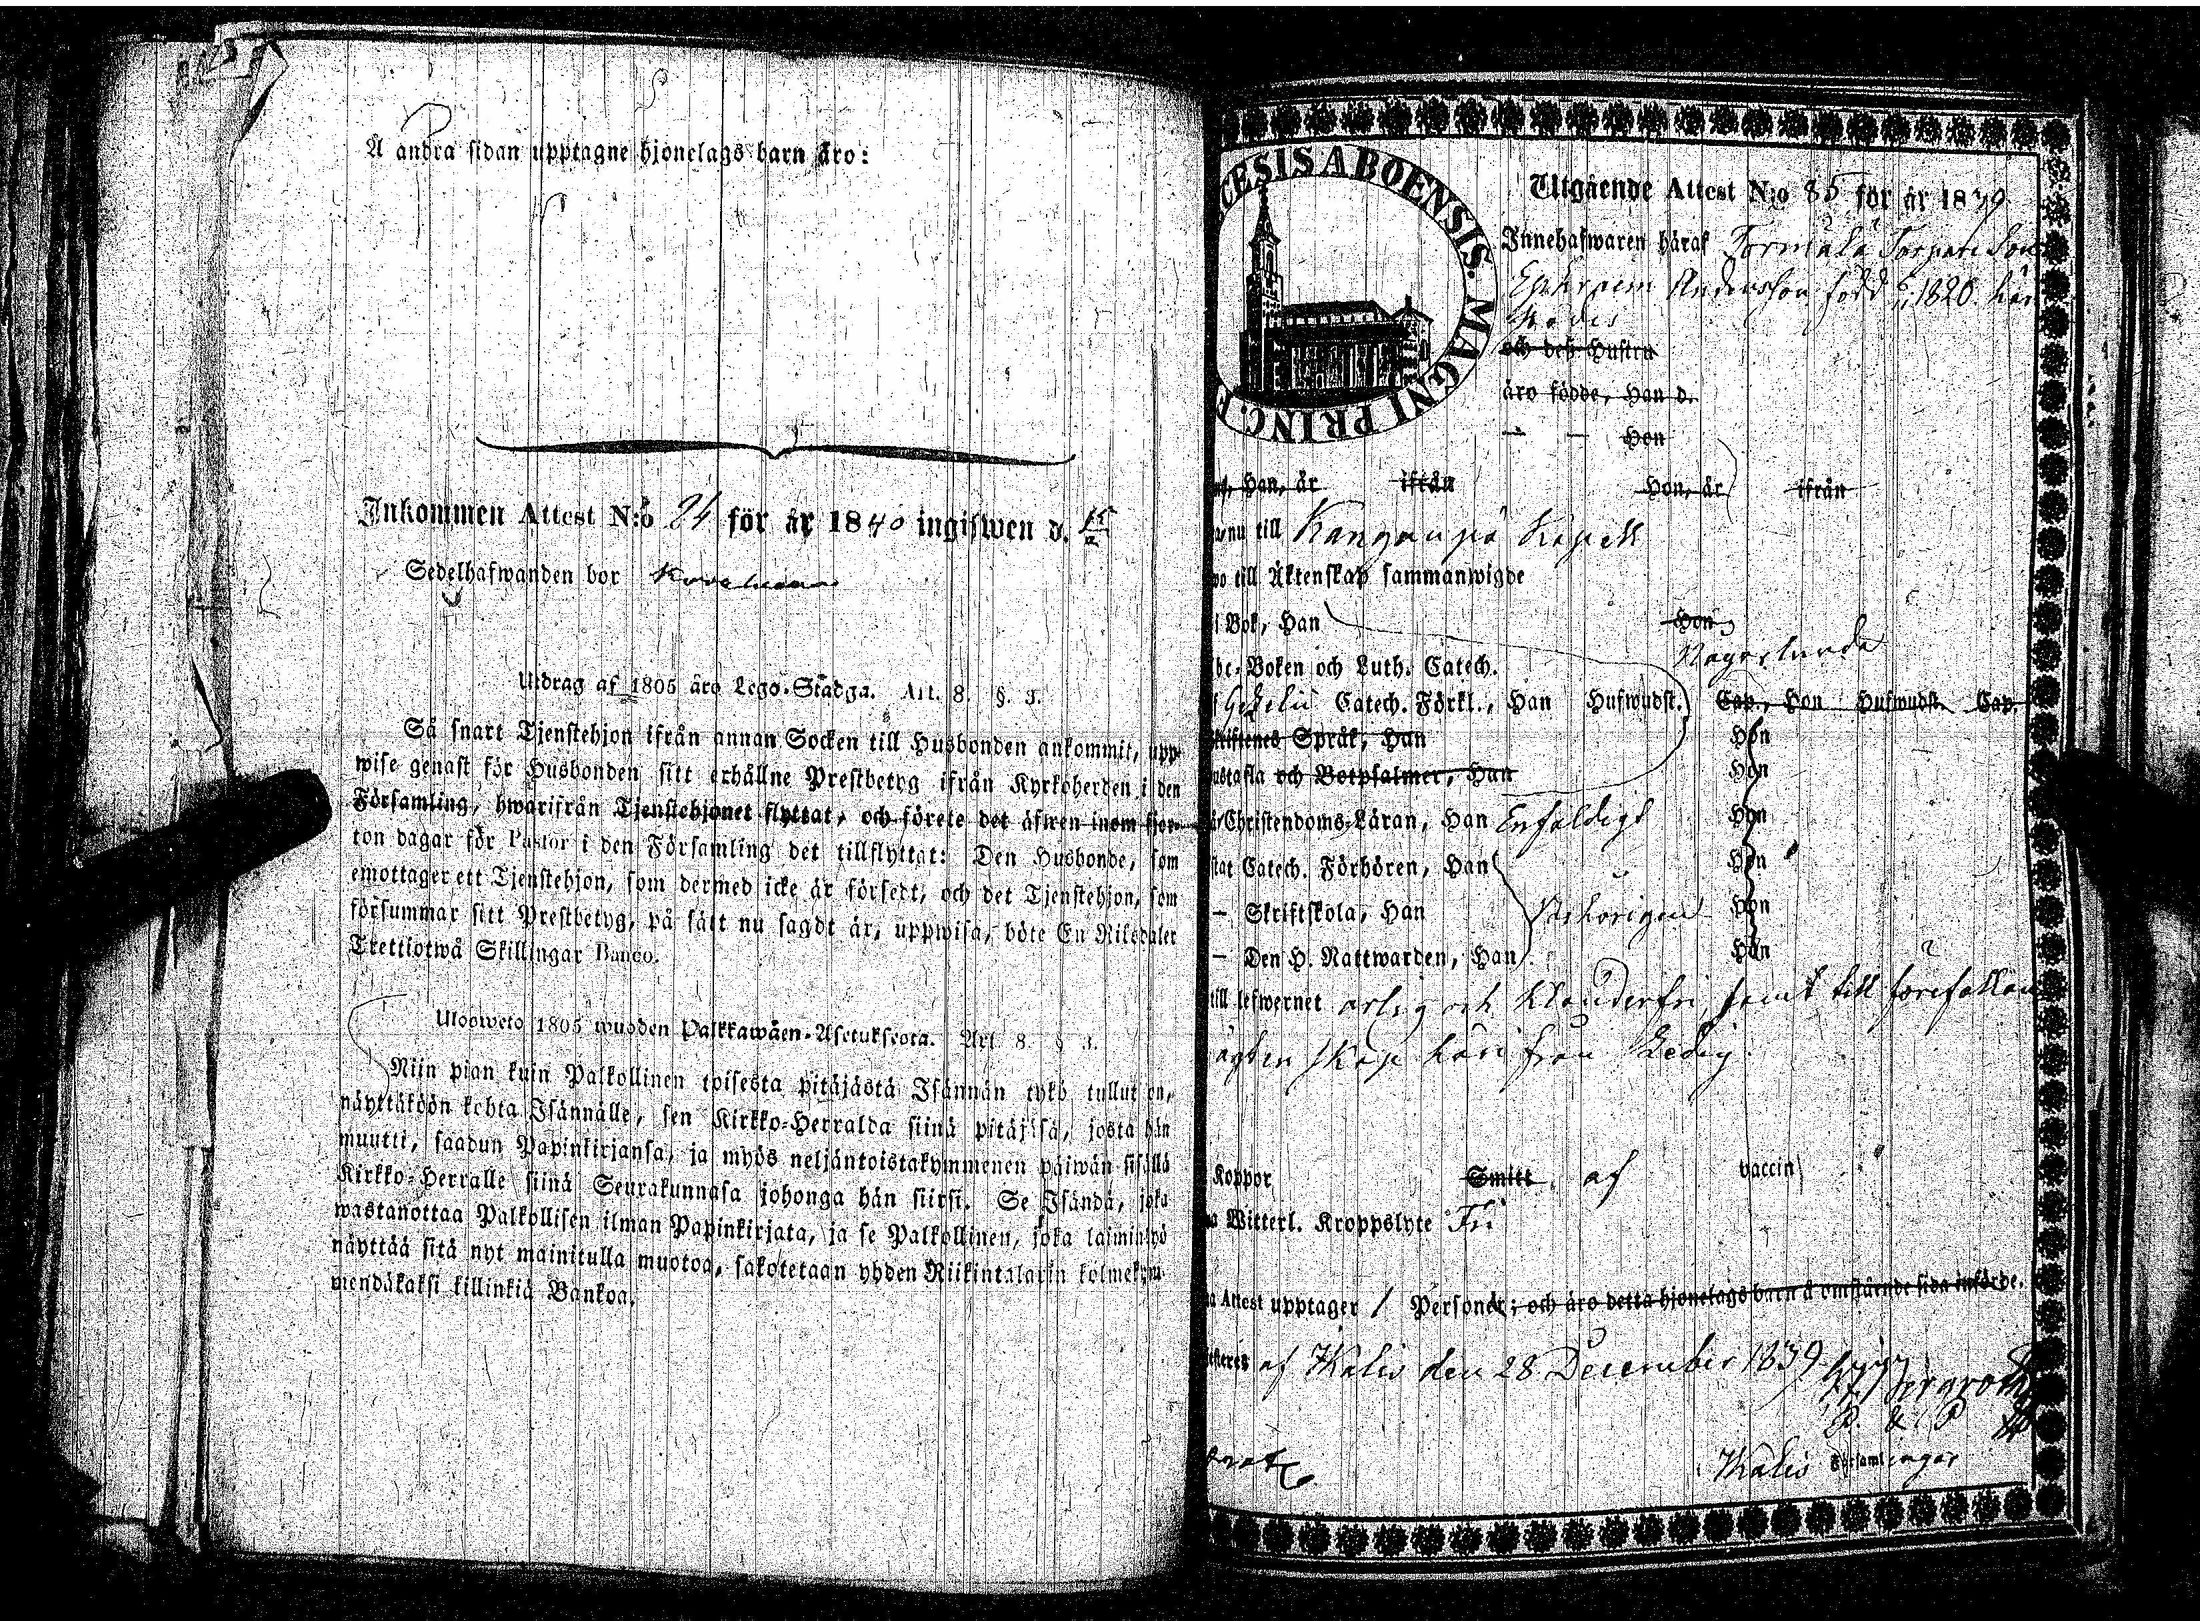 Å andra sidan upptagne hjonelags barn äro:
Inkommen Attest N:o 24 för år 1840 ingifwen d. 15/2
Sedelhafwanden bor
Utdrag af 1805 års Lego-Stadga. Art. 8. §. 3.
Så snart Tjenstehjon ifrån annan Socken till Husbonden ankommit, upp-
wise genast för Husbonden sitt erhållne Prestbetyg ifrån Kyrkoherden i den
Församling, hwarifrån Tjenstehjonet flyttat, och förete det äfwen inom fjor-
ton dagar för Pastor i den Församling det tillflyttat: Den Husbonde, som
emottager ett Tjenstehjon, som dermed icke är försedt, och det Tjenstehjon, som
försummar sitt Prestbetyg, på sätt nu sagdt är, uppwisa, böte En Riksdaler
Trettiotwå Skillingar Banco.
Ulosweto 1805 wuoden Palkkawäen-Asetuksesta. Art. 8. § 3.
Niin pian kuin Palkollinen toisesta pitäjästä Isännän tykö tullut on,
näyttäköön kohta Isännälle, sen Kirkko-Herralda siinä pitäjäsä, josta hän
muutti, saadun Papinkirjansa, ja myös neljäntoistakymmenen päiwän sisällä
Kirkko-Herralle siinä Seurakunnasa johonga hän siirsi. Se Isändä, joka
wastanottaa Palkollisen ilman Papinkirjata, ja se Palkollinen, joka laiminlyö
näyttää sitä nyt mainitulla muotoa, sakotetaan yhden Riikintalarin kolmekym-
mendäkaksi killinkiä Bankoa.
CESIS ABOENSIS. MAGNI PRINC. F
Utgående Attest N:o 85 för år 1839
Innehafwaren häraf Tormälä Torpare Son
Ephraim Andersson född 1820. här
och deß Hustru
äro födde, Han d.
— — Hon
Han, år ifrån Hon, år ifrån
nu till Kangonpä Kapell
till Äktenskap sammanwigde
i Bok, Han Hon
be-Boken och Luth. Catech.
Catech. Förkl., Han Hufwudst. Cap., Hon Hufwudst. Cap.
Skriftenes Språk, Han Hon
ustafla och Botpsalmer, Han Hon
Christendoms-Läran, Han Enfaldigt Hon
tat Catech. Förhören, Han Hon
— Skriftskola, Han Hon
— Den H. Nattwarden, Han Hon
till lefwernet ärlig och Klanderfri, samt till förefallan
ägten skap härifrån Ledig.
Koppor Smitt af vaccin
Witterl. Kroppslyte Fri
Attest upptager 1 Personer; och äro detta hjonelags barn å omstående sida införde.
af Ikalis den 28 December 1839
Bergroth
P. & P
Ikalis Församlingar